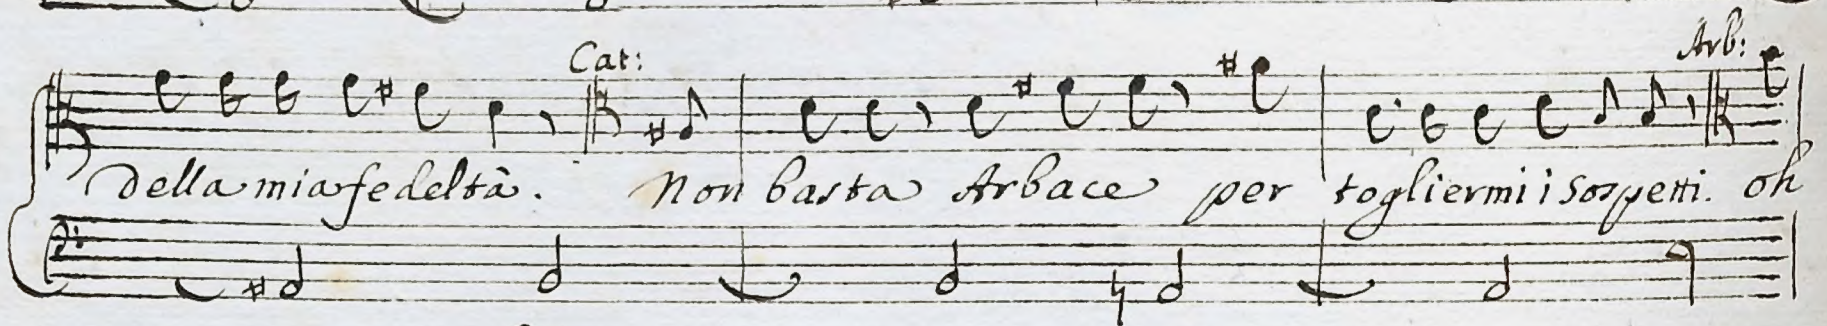 Cat: Arb:
della mia fedeltà. Non basta Arbace per togliermi i Sospetti. oh